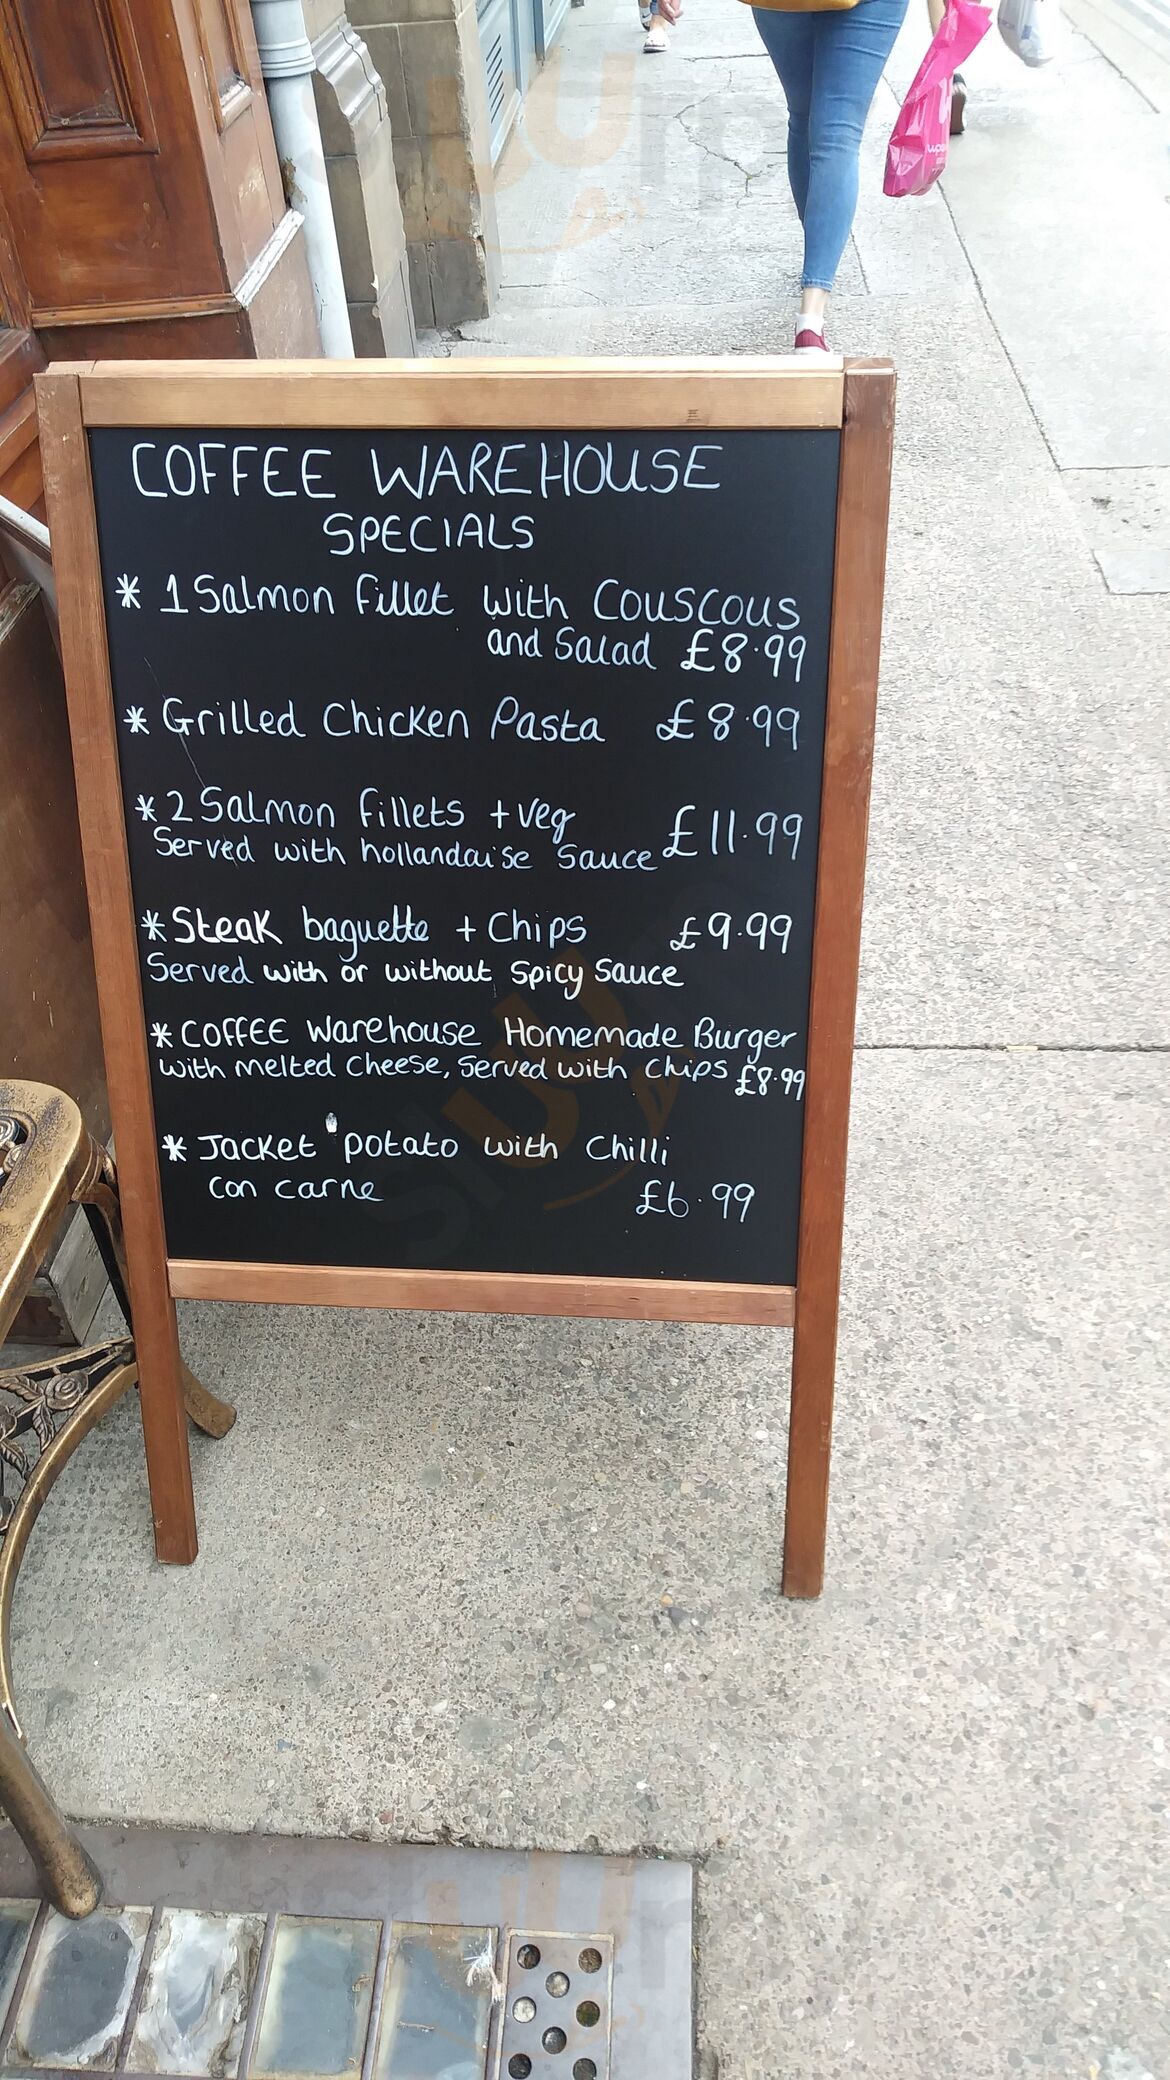 COFFEE WAREHOUSE
SPECIALS
* 1 Salmon fillet with Couscous
and Salad £8.99
* Grilled Chicken Pasta £8.99
* 2 Salmon fillets + veg £11.99
Served with hollandaise Sauce
* Steak baguette + Chips £9.99
Served with or without Spicy Sauce
* COFFEE Warehouse Homemade Burger
with melted Cheese, Served with Chips £8.99
* Jacket potato with Chilli
con carne £6.99